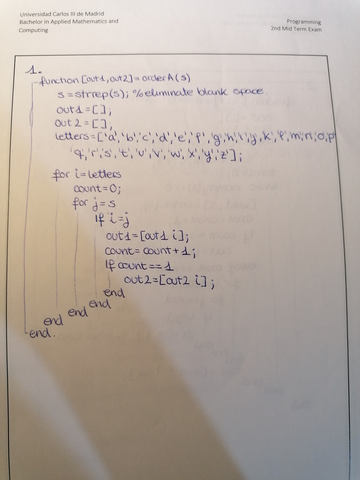 Universidad Carlos III de Madrid
Bachelor in Applied Mathematics and
Computing
Programming
2nd Mid Term Exam
1.
function [out1,out2]=orderA(s)
s=strrep(s); %eliminate blank space.
out1=[];
out2=[];
letters=['a','b','c','d','e','f','g','h','i','j','k','l','m','n','o','p'
'q','r','s','t','u','v','w','x','y','z'];
for i=letters
count=0;
for j=s
if i=j
out1=[out1 i];
count=count+1;
if count==1
out2=[out2 i];
end
end
end
end
end.